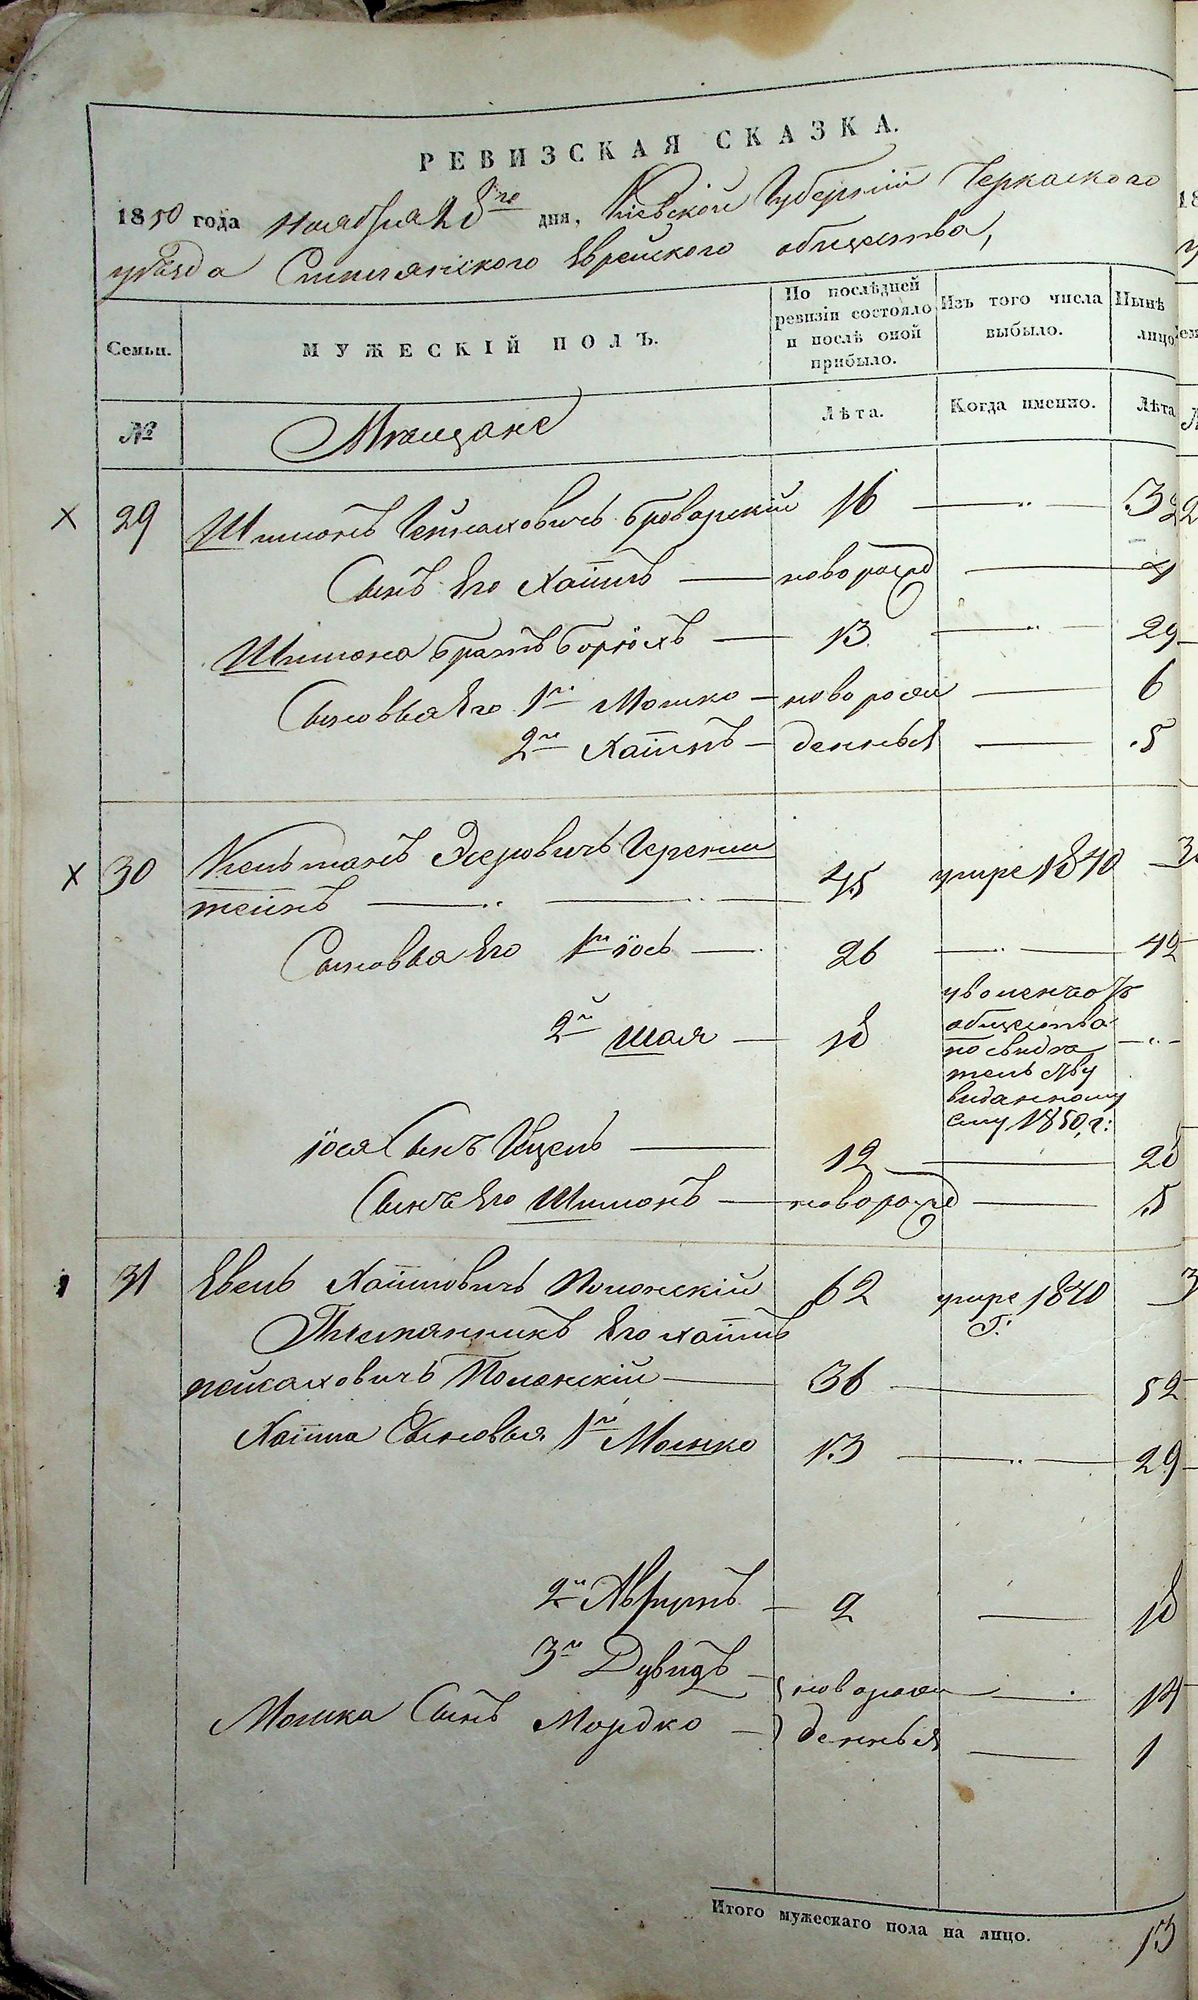 РЕВИЗСКАЯ СКАЗКА.
1850 года Ноября 28го дня, Кіевской Губерніи Черкаского
уѣзда Смѣлянского Еврейского общества,
Семьи. МУЖЕСКІЙ ПОЛЪ. По послѣдней ревизіи состояло и послѣ оной прибыло. Изъ того числа выбыло. Нынѣ лицо
№ Мѣщане Лѣта. Когда именно. Лѣта
х 29 Шимонъ Пейсаховичъ Броварскій 16 — " — 32
Сынъ Его Хаимъ — новорожд — 4
Шимона братъ Борюхъ — 13 — " — 29
Сыновья Его 1й Мошко — новорож — 6
2й Хаимъ — денныя — 5
х 30 Эсеровичъ
тейнъ — " — " — 45 умре 1840
Сыновья Его 1й Іось — 26 — " — 42
2й Шая — 18 уволенъ отъ
общества
по свидѣ
тельству
виданному
ему 1850, г: — " —
Іося Сынъ Ицель — 12 — 28
Сынъ Его Шимонъ — новорожд — 5
31 Хаимовичъ Полонскій 62 умре 1840 г:
Племянникъ Его Хаимъ
пейсаховичъ Полонскій — 36 — 52
Хаима Сыновья 1й Мошко 13 — " — 29
2й Аврумъ — 2 — 18
3й Дувидъ — новорож — 14
Мошка Сынъ Мордко — денныя — 1
Итого мужескаго пола на лицо. 13